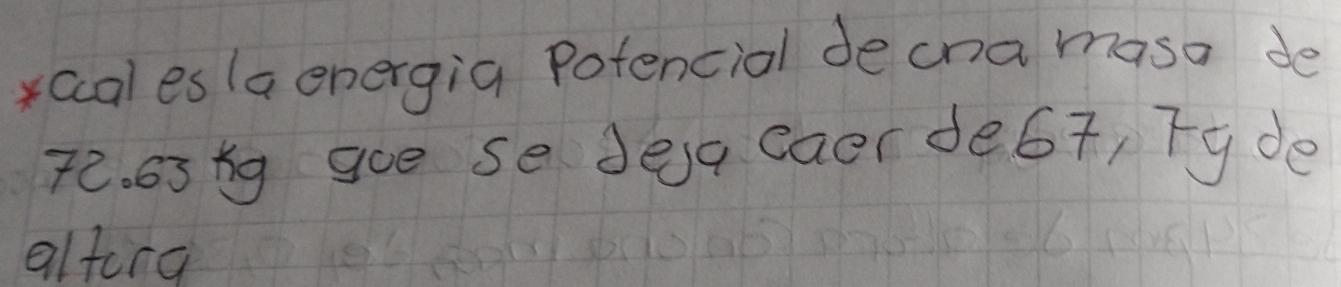 *cual es la energia Potencial de una masa de
72.63 kg que se deja caer de 67, 7y de
altura